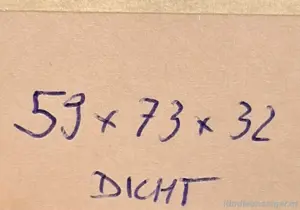 59 x 73 x 32
DICHT